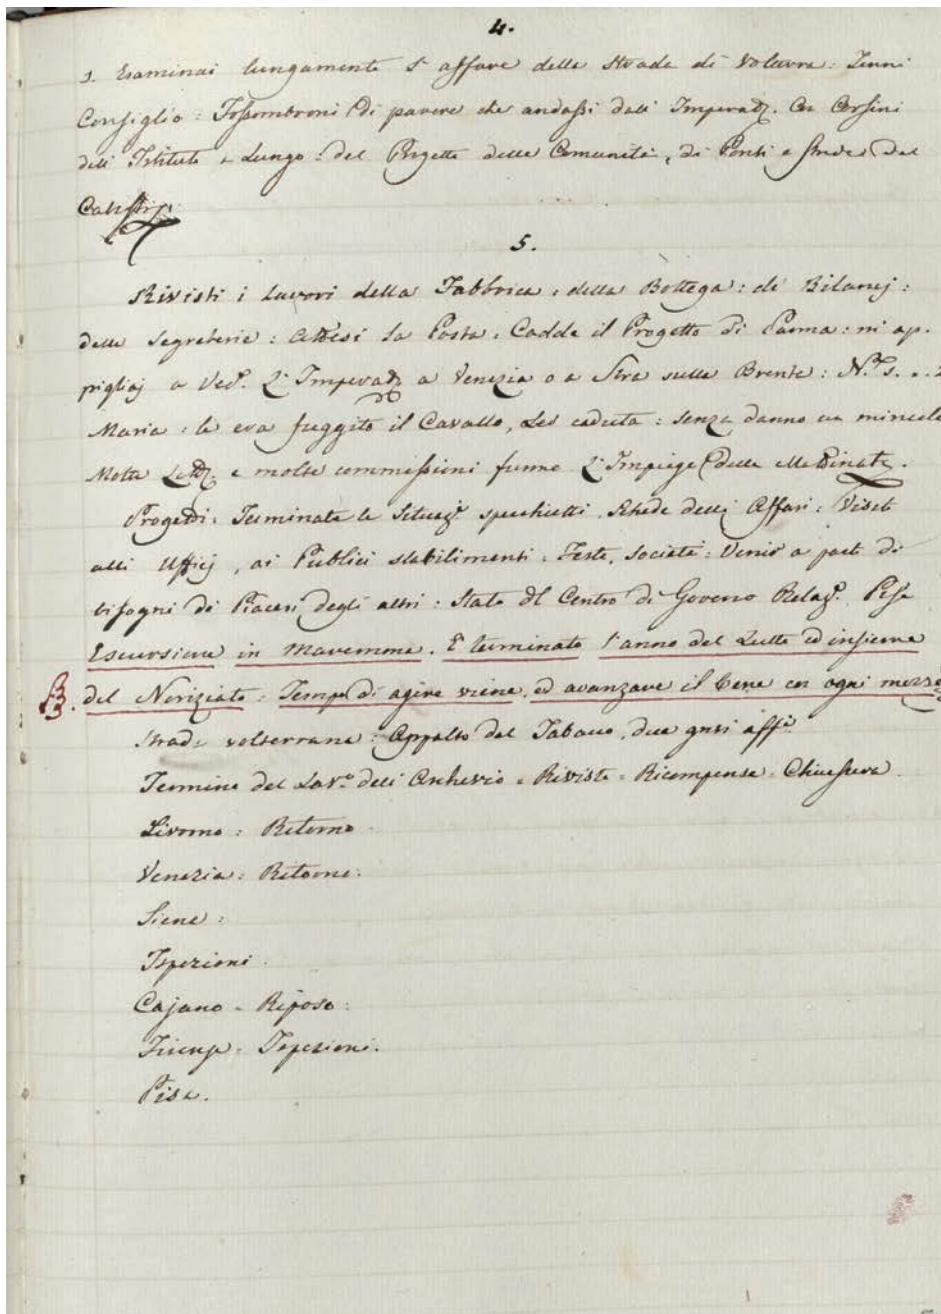 4.
s. Esaminai lungamente l'affare delle Strade di Volterra: Tenni
Consiglio: Fossombroni di parere che andassi dall Imperad. Con Corsini
dell Istituto a Lungo: del Progetto delle Comunità, di Ponti e Strade, del
5.
Rivisti i Lavori della Fabbrica: della Bottega: de Bilanej:
delle Segreterie: Attesi la Posta. Cadde il Progetto di Parma: mi ap.
pigliaj a Ved. l'Imperad. a Venezia o a Stra sulla Brenta: N. S...
Maria: le era fuggito il Cavallo, Lei caduta: senza danno un miracolo
Molte Lett. e molte commissioni funno l'Impiego delle Mattinate.
Progetti: Terminate le Situaz. specchietti Schede degli Affari: Visite
alli Ufficj, ai Publici stabilimenti. Feste, Società: Venir a parte di
bisogni de Piaceri degli altri: Stato del Centro di Governo Relaz. Pisa
Escursione in Maremma. E terminato l'anno del Lutto ed insieme
del Noviziato: Tempo di agire viene, ed avanzare il bene con ogni mezzo
Strade volterrane: Appalto del Tabacco, due grssi aff.
Termine del Lav.o dell Archivio - Riviste - Ricompense - Chiusura.
Livorno: Ritorno
Venezia: Ritorno:
Siena:
Ispezioni.
Cajano - Riposo:
Firenze - Ispezioni.
Pisa.